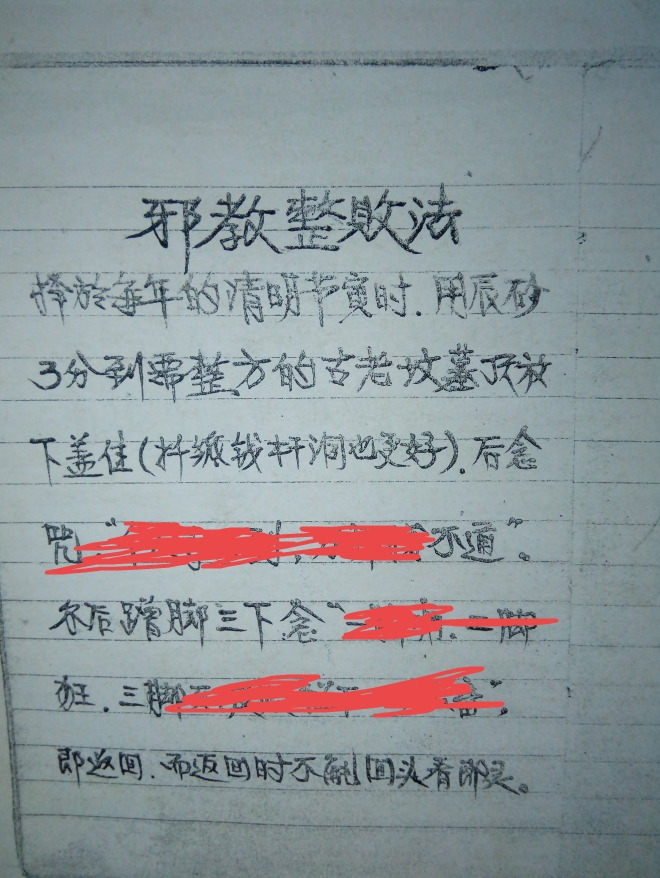 邪教整敗法
择於每年的清明节寅时.用辰砂
3分到需整方的古老坟墓顶放
下盖住(抖纸钱杆洞也更好).后念
咒"不道".
尔后蹭脚三下念"一脚
狂.三脚
即返回.而返回时不能回头看即灵。